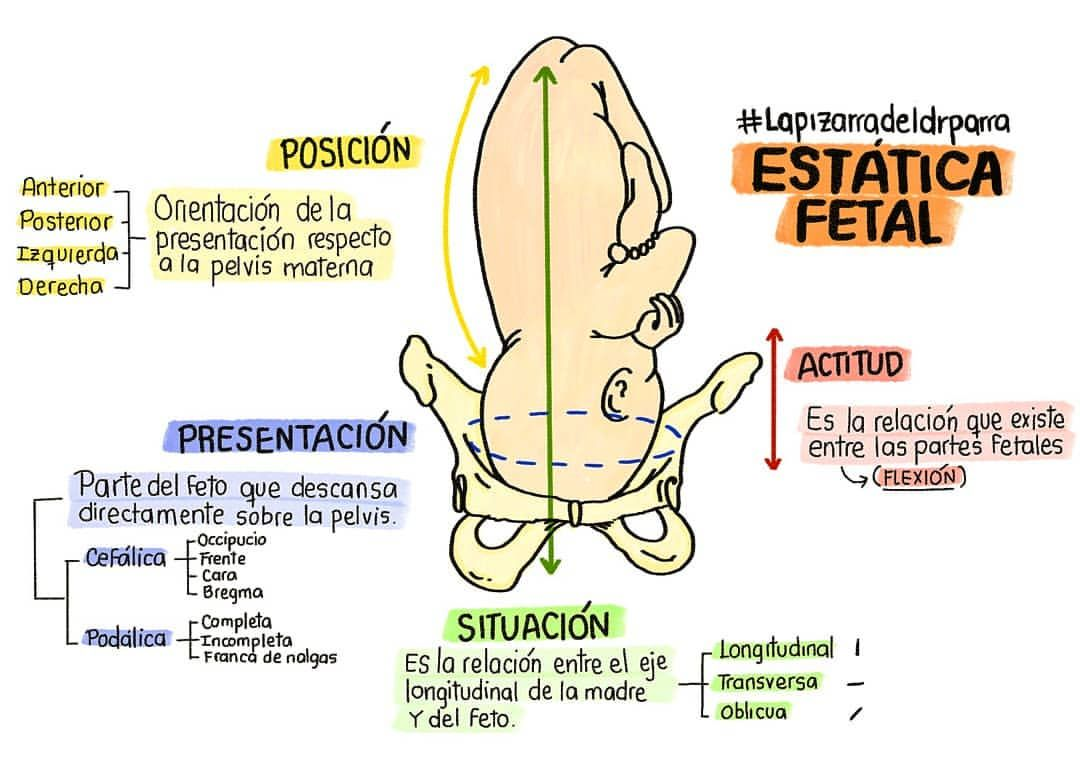 #Lapizarradeldrparra
ESTÁTICA
FETAL
POSICIÓN
Anterior
Posterior
Izquierda
Derecha
Orientación de la
presentación respecto
a la pelvis materna
ACTITUD
Es la relación que existe
entre las partes Fetales
(FLEXIÓN)
PRESENTACIÓN
Parte del Feto que descansa
directamente sobre la pelvis.
Cefálica
Occipucio
Frente
Cara
Bregma
Podálica
Completa
Incompleta
Franca de nalgas
SITUACIÓN
Es la relación entre el eje
longitudinal de la madre
Y del Feto.
Longitudinal
Transversa
Oblicua